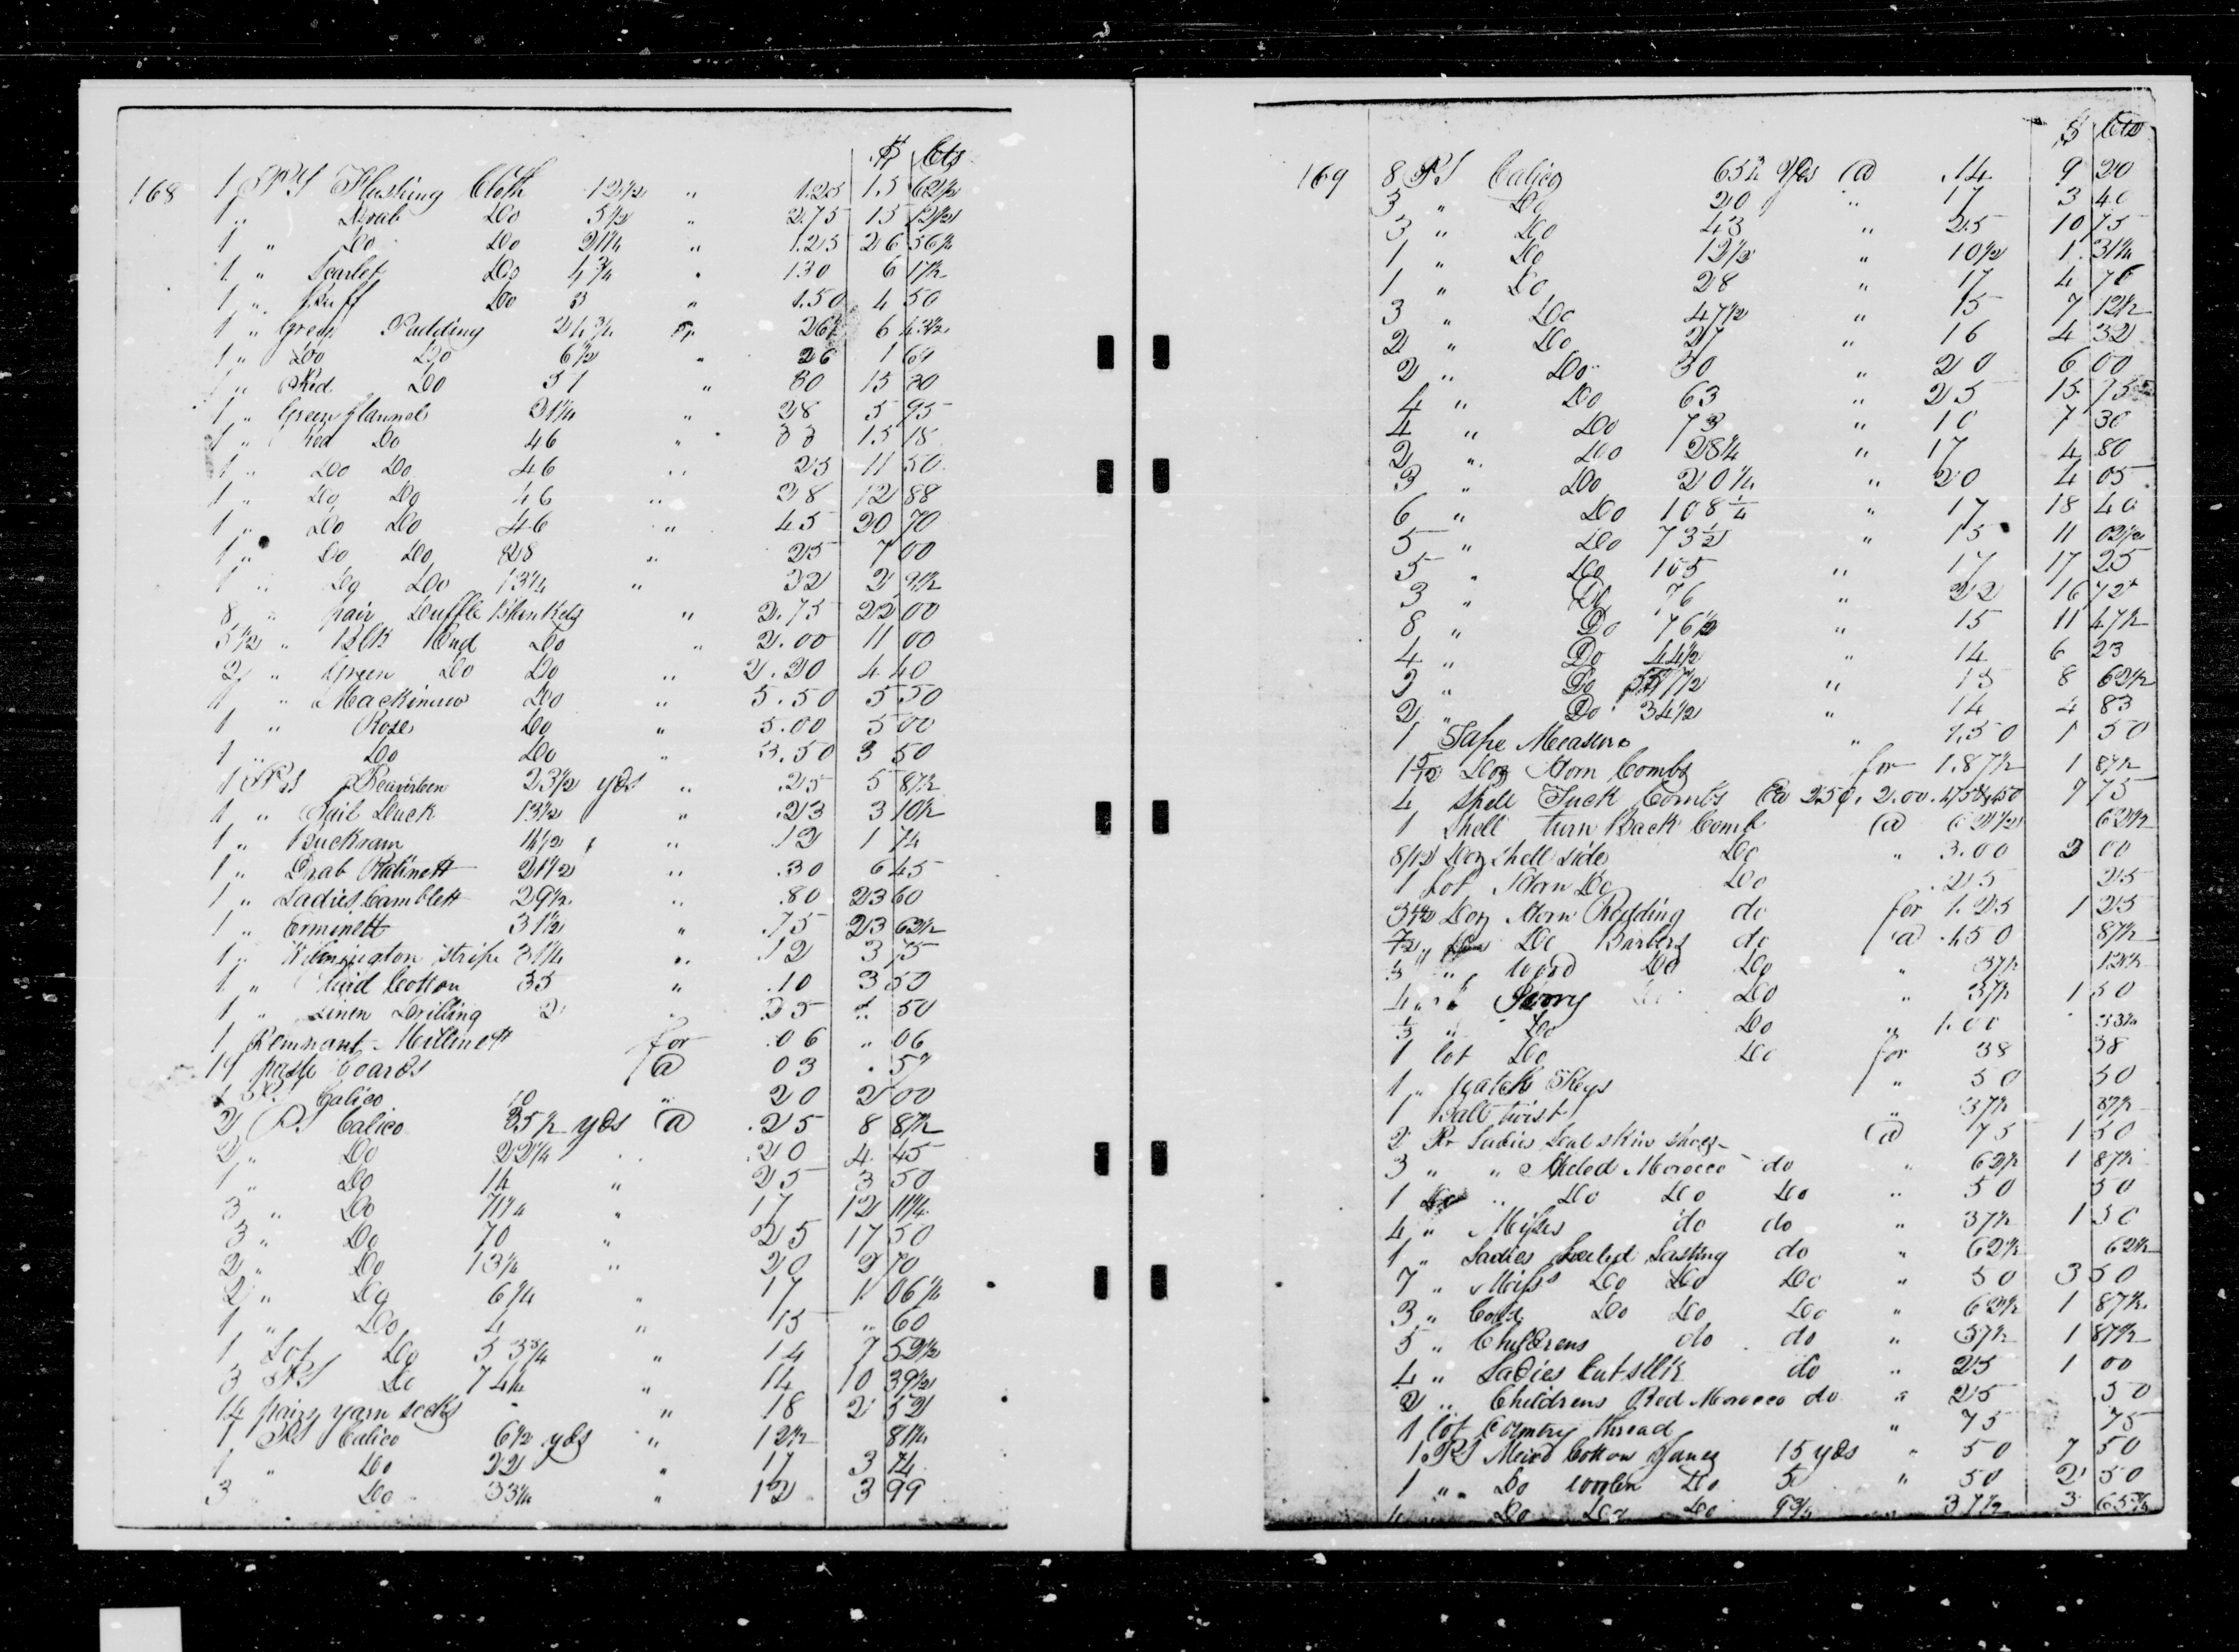 $ Cts
168 1 PS Flushing Cloth 12 1/2 " 1.25 15 62 1/2
1 " Drab Do 5 1/2 " 2.75 15 12 1/2
1 " Do Do 21 1/4 " 1.25 26 56 1/4
1 " Scarlet Do 4 3/4 " 130 6 17 1/2
1 " Buff Do 3 " 1.50 4 50
1 " Green Padding 24 3/4 " 26 6 43 1/2
1 " Do Do 6 1/2 " 26 1 69
1 " Red Do 51 " 30 15 30
1 " Green flannel 21 1/4 " 28 5 95
1 " Red Do 46 " 33 15 18
1 " Do Do 46 " 25 11 50
1 " Do Do 46 " 28 12 88
1 " Do Do 46 " 45 20 70
1 " Do Do 28 " 25 7 00
1 " Do Do 13 1/4 " 32 2
8 " pair Duffle Blankets " 2.75 22 00
5 1/2 " Blk End Do " 2.00 11 00
2 " Green Do Do " 2.20 4 40
1 " Mackinaw Do " 5.50 5 50
1 " Rose Do " 5.00 5 00
1 " Do Do " 3.50 3 50
1 PS Beaverteen 23 1/2 yds " .25 5 87 1/2
1 " Sail Duck 13 1/2 " .23 3 10 1/2
1 " Buckram 14 1/2 " .12 1 74
1 " Drab Ratinett 21 1/2 " .30 6 45
1 " Ladies Camblett 29 1/2 " .80 23 60
1 " Erminett 31 1/2 " .75 23 62 1/2
1 " Wilmington stripe 31 1/4 " .12 3 75
1 " Plaid Cotton 35 " .10 3 50
1 " Linen Drilling 2 " .25 " 50
1 Remnant Millinett for .06 " 06
19 paste boards @ 03 . 57
1 PS Calico 10 " 20 2 00
2 PS Calico 35 1/2 yds @ .25 8 87 1/2
2 " Do 22 1/4 " .20 4 45
1 " Do 14 " 25 3 50
3 " Do 71 1/4 " 17 12 11 1/4
3 " Do 70 " 25 17 50
2 " Do 13 1/2 " 20 2 70
2 " Do 6 1/4 " 17 1 06 1/4
1 " Do 4 " 15 " 60
1 Lot Do 53 3/4 " 14 7 52 1/2
3 PS Do 74 1/4 " 14 10 39 1/2
14 pairs yarn socks " 18 2 52
1 PS Calico 6 1/2 yds " 12 1/2 81 1/4
1 " Do 22 " 17 3 74
3 Do 33 1/4 " 12 3 99
$ Cts
169 8 PS Calico 65 1/2 Yds @ .14 9 20
3 " Do 20 " 17 3 40
3 " Do 43 " 25 10 75
1 " Do 12 1/2 " 10 1/2 1 31 1/4
1 " Do 28 " 17 4 76
3 " Do 47 1/2 " 15 7 12 1/2
2 " Do 27 " 16 4 32
2 " Do 30 " 20 6 00
4 " Do 63 " 25 15 75
4 " Do 73 " 10 7 30
2 " Do 28 1/4 " 17 4 80
3 " Do 20 1/4 " 20 4 05
6 " Do 108 1/4 " 17 18 40
5 " Do 73 1/2 " 15 11 02 1/2
5 " Do 105 " 17 17 25
3 " Do 76 " 22 16 72
8 " Do 76 1/2 " 15 11 47 1/2
4 " Do 44 1/2 " 14 6 23
2 " Do 57 1/2 " 15 8 62 1/2
2 " Do 34 1/2 " 14 4 83
1 Tape Measure " 1.50 1 50
1 5/12 Doz Horn Combs for 1.87 1/2 1 87 1/2
4 Shell Tuck Combs @ 2.50, 2.00. 7 75
1 Shell turn Back Comb @ 62 1/2 62 1/2
8/12 Doz Shell side Do " 3.00 2 00
1 Lot Horn Do Do .25 25
Doz Horn Redding do for 1.25 1 25
7/12 " Do Barbers do @ 1.50 87 1/2
1/3 " Wood Do Do " 37 1/2 12 1/2
4 " Ivory Do " 37 1/2 1 50
1/3 " Do Do " 1.00 33 1/4
1 lot Do Do for 38 38
1 " Watch Keys " 50 50
1 Ball twist " 37 1/2 37 1/2
2 Pr Ladies Seal skin shoes @ 75 1 50
3 " " Heeled Morocco do " 62 1/2 1 87 1/2
1 " Do Do Do " 50 50
4 " Misses do do " 37 1/2 1 50
1 " Ladies heeled Lasting do " 62 1/2 62 1/2
7 " Misses Do Do Do " 50 3 50
3 " Cold Do Do Do " 62 1/2 1 87 1/2
5 " Childrens do do " 37 1/2 1 87 1/2
4 " Ladies Cut silk do " 25 1 00
2 " Childrens Red Morocco do " 25 .50
1 lot Country thread " 75 75
1 PS Mixed Cotton Janes 15 yds " 50 7 50
1 " Do woolen Do 5 " 50 2 50
Do Do Do 9 3/4 37 1/2 3 65 3/4